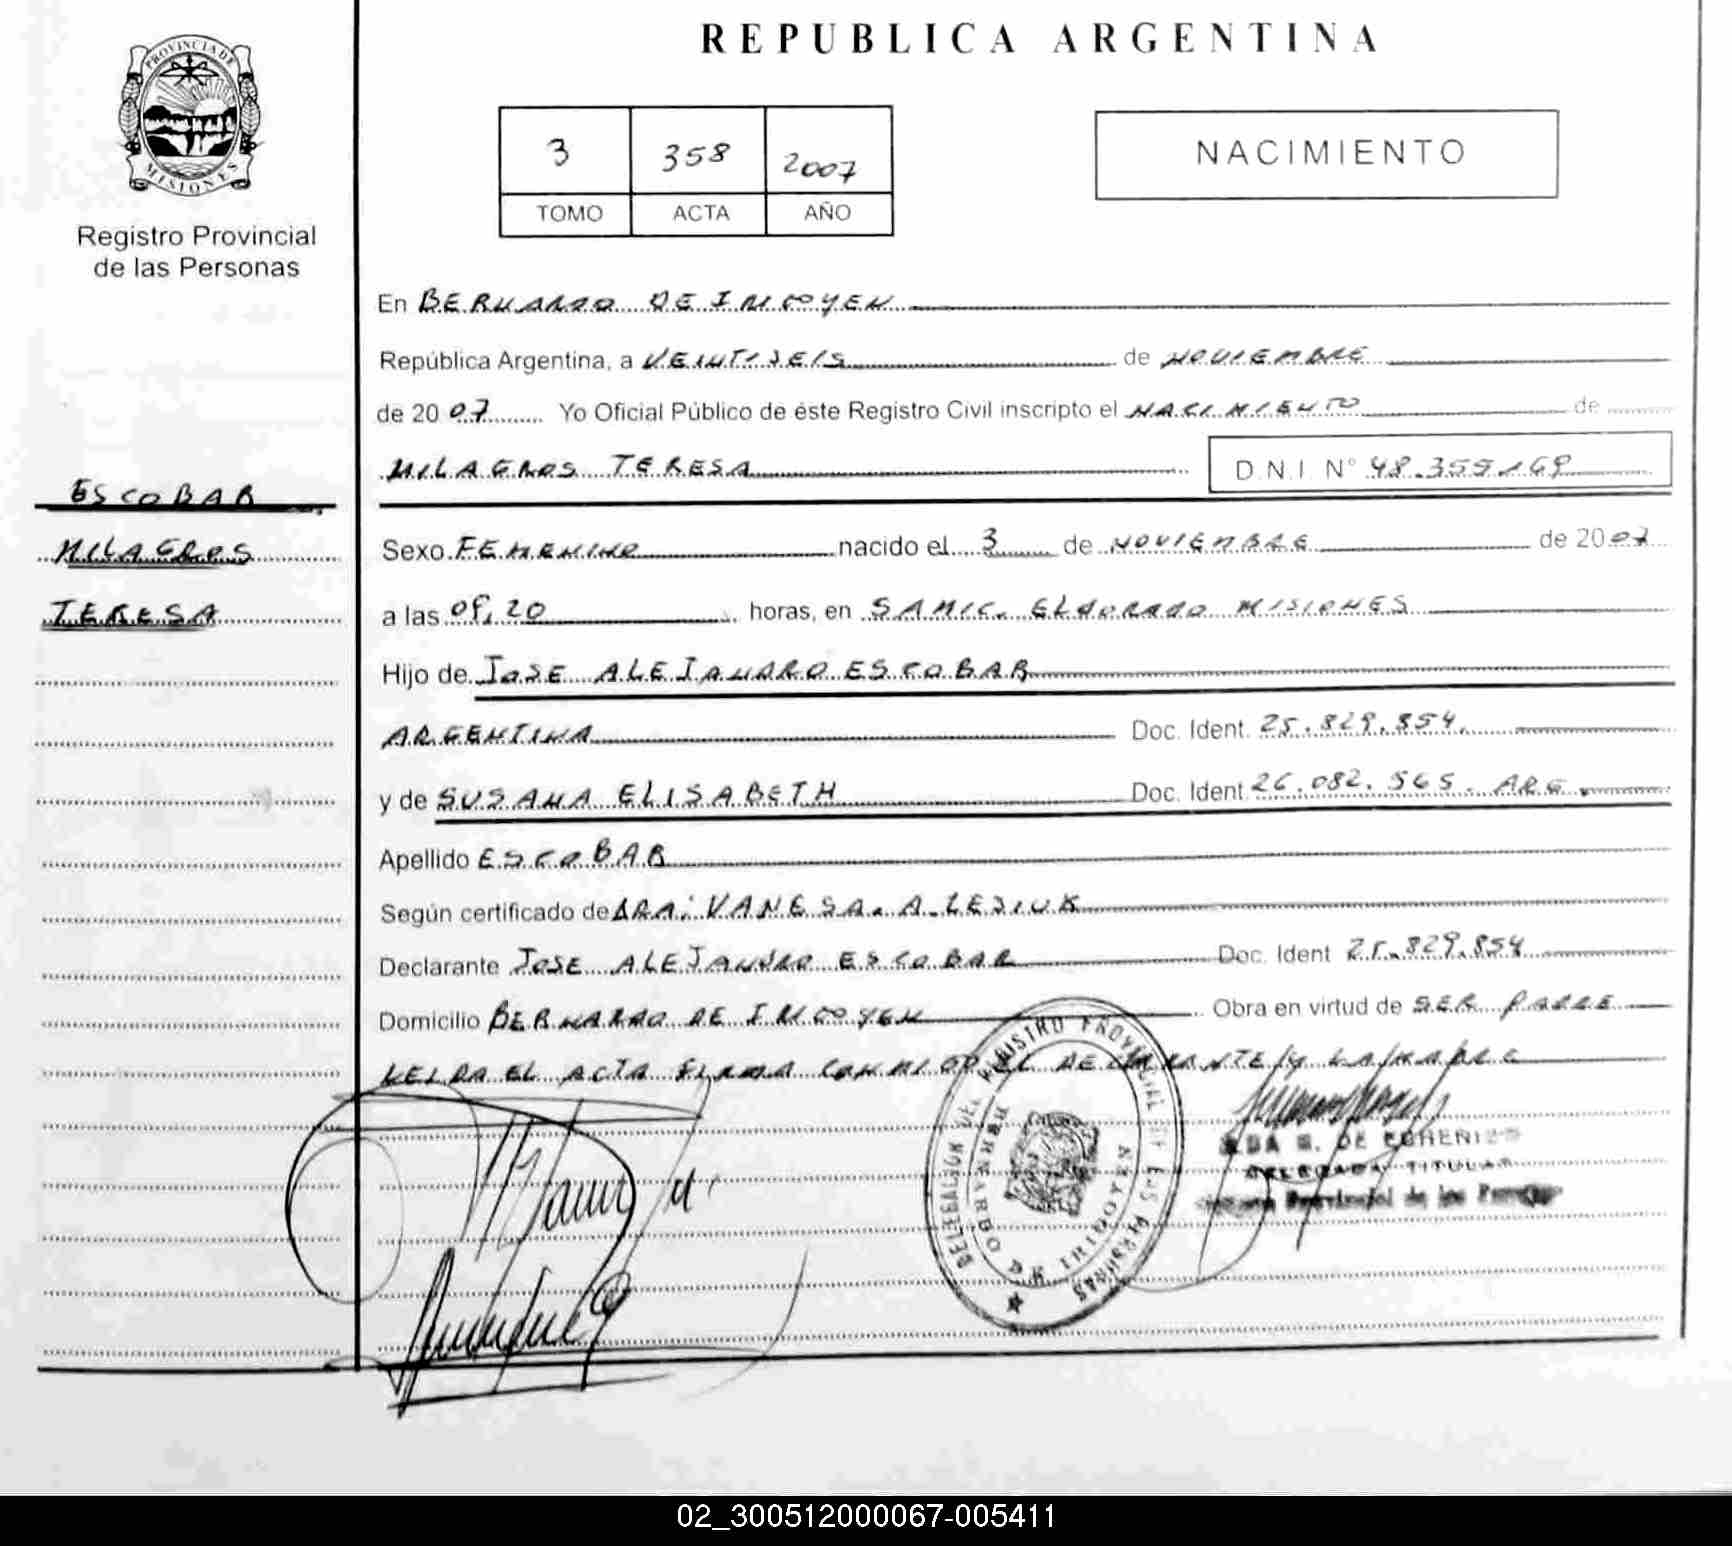 PROVINCIA DE
MISIONES
Registro Provincial
de las Personas
ESCOBAR
MILAGROS
TERESA
REPUBLICA ARGENTINA
3 358 2007
TOMO ACTA AÑO
NACIMIENTO
En BERNARDO DE IRIGOYEN
República Argentina, a VEINTISEIS de NOVIEMBRE
de 2007 Yo Oficial Público de éste Registro Civil inscripto el NACIMIENTO de
MILAGROS TERESA D.N.I. N° 48.359.169
Sexo FEMENINO nacido el 3 de NOVIEMBRE de 2007
a las 09,20 horas, en SAMIC. ELDORADO MISIONES
Hijo de JOSE ALEJANDRO ESCOBAR
ARGENTINA Doc. Ident. 25.829.854.
y de SUSANA ELISABETH Doc. Ident 26.082.565. ARG.
Apellido ESCOBAR
Según certificado de DRA: VANESA. A. LESIUK
Declarante JOSE ALEJANDRO ESCOBAR Doc. Ident 25.829.854
Domicilio BERNARDO DE IRIGOYEN Obra en virtud de SER PADRE
LEIDA EL ACTA FIRMA CONMIGO EL DECLARANTE/Y LA MADRE
DELEGACION DEL REGISTRO PROVINCIAL DE LAS PERSONAS
BERNARDO DE IRIGOYEN
DELEGADA TITULAR
Provincial de las Personas
02_300512000067-005411